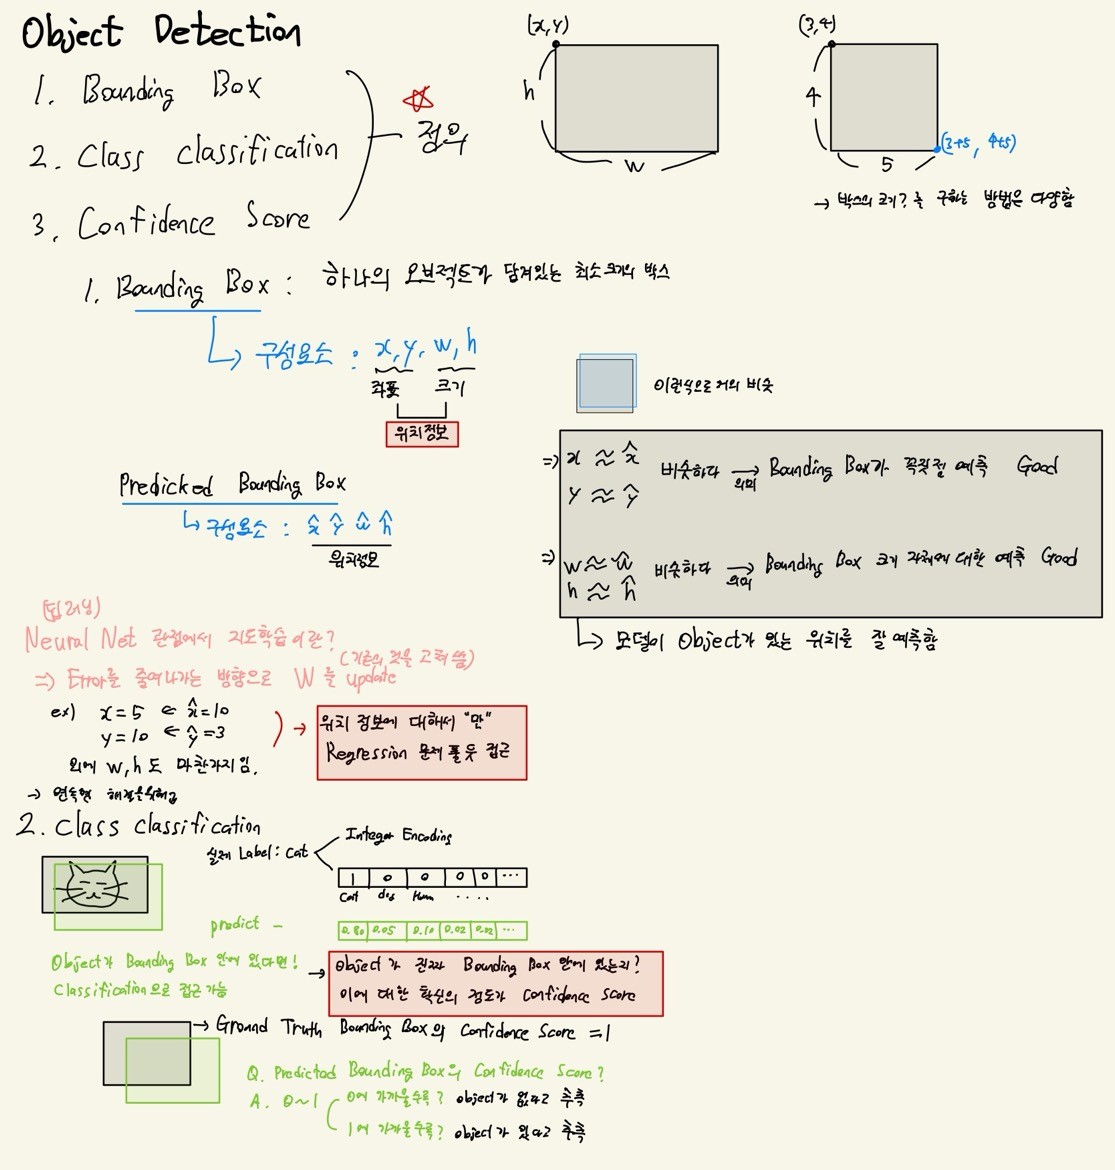 Object Detection
1. Bounding Box
2. Class classification
3. Confidence Score
☆
정의
(x,y)
h
w
(3,4)
4
5
(3+5, 4+5)
→ 박스의 크기? 를 구하는 방법은 다양함
1. Bounding Box : 하나의 오브젝트가 담겨있는 최소크기의 박스
↳ 구성요소 : x, y, w, h
좌표 크기
위치정보
이런식으로 거의 비슷
Predicked Bounding Box
↳ 구성요소 : x̂ ŷ ŵ ĥ
위치정보
⇒ x ≈ x̂
y ≈ ŷ
비슷하다 → 의미 Bounding Box가 꼭짓점 예측 Good
⇒ w ≈ ŵ
h ≈ ĥ
비슷하다 → 의미 Bounding Box 크기 자체에 대한 예측 Good
↳ 모델이 Object가 있는 위치를 잘 예측함
(딥러닝)
Neural Net 관점에서 지도학습이란?
(기존의 것을 고쳐 씀)
⇒ Error를 줄여나가는 방향으로 W를 update
ex) x = 5 ← x̂ = 10
y = 10 ← ŷ = 3
외에 w, h 도 마찬가지임.
위치 정보에 대해서 "만"
Regression 문제 풀듯 접근
→ 연속형
2. Class Classification
실제 Label : Cat
Integer Encoding
1 0 0 0 0 ...
Cat dog Human ....
predict -
0.80 0.05 0.10 0.02 0.02 ...
Object가 Bounding Box 안에 있다면!
Classification으로 접근 가능
→ Object가 진짜 Bounding Box 안에 있는지?
이에 대한 확신의 정도가 Confidence Score
→ Ground Truth Bounding Box의 Confidence Score = 1
Q. Predicted Bounding Box의 Confidence Score?
A. 0~1
0에 가까울수록? object가 없다고 추측
1에 가까울수록? object가 있다고 추측